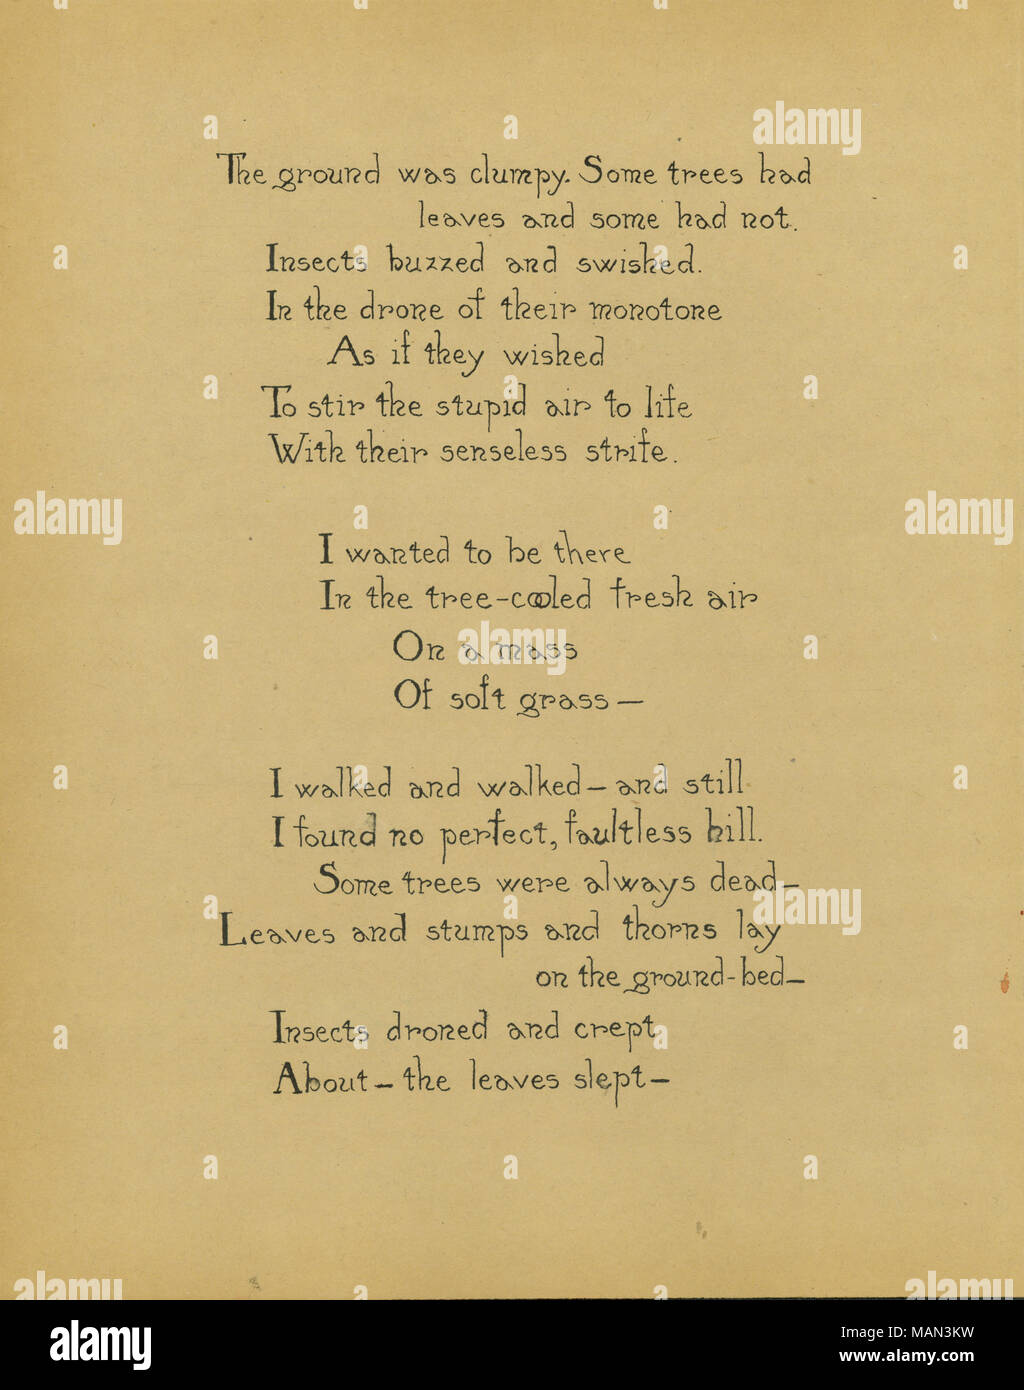 The ground was clumpy. Some trees had
leaves and some had not.
Insects buzzed and swished.
In the drone of their monotone
As if they wished
To stir the stupid air to life
With their senseless strife.
I wanted to be there
In the tree-cooled fresh air
On a mass
Of soft grass—
I walked and walked—and still
I found no perfect, faultless hill.
Some trees were always dead—
Leaves and stumps and thorns lay
on the ground-bed—
Insects droned and crept
About—the leaves slept—
alamy
alamy
alamy
alamy
alamy
alamy
alamy
alamy
Image ID: MAN3KW
www.alamy.com